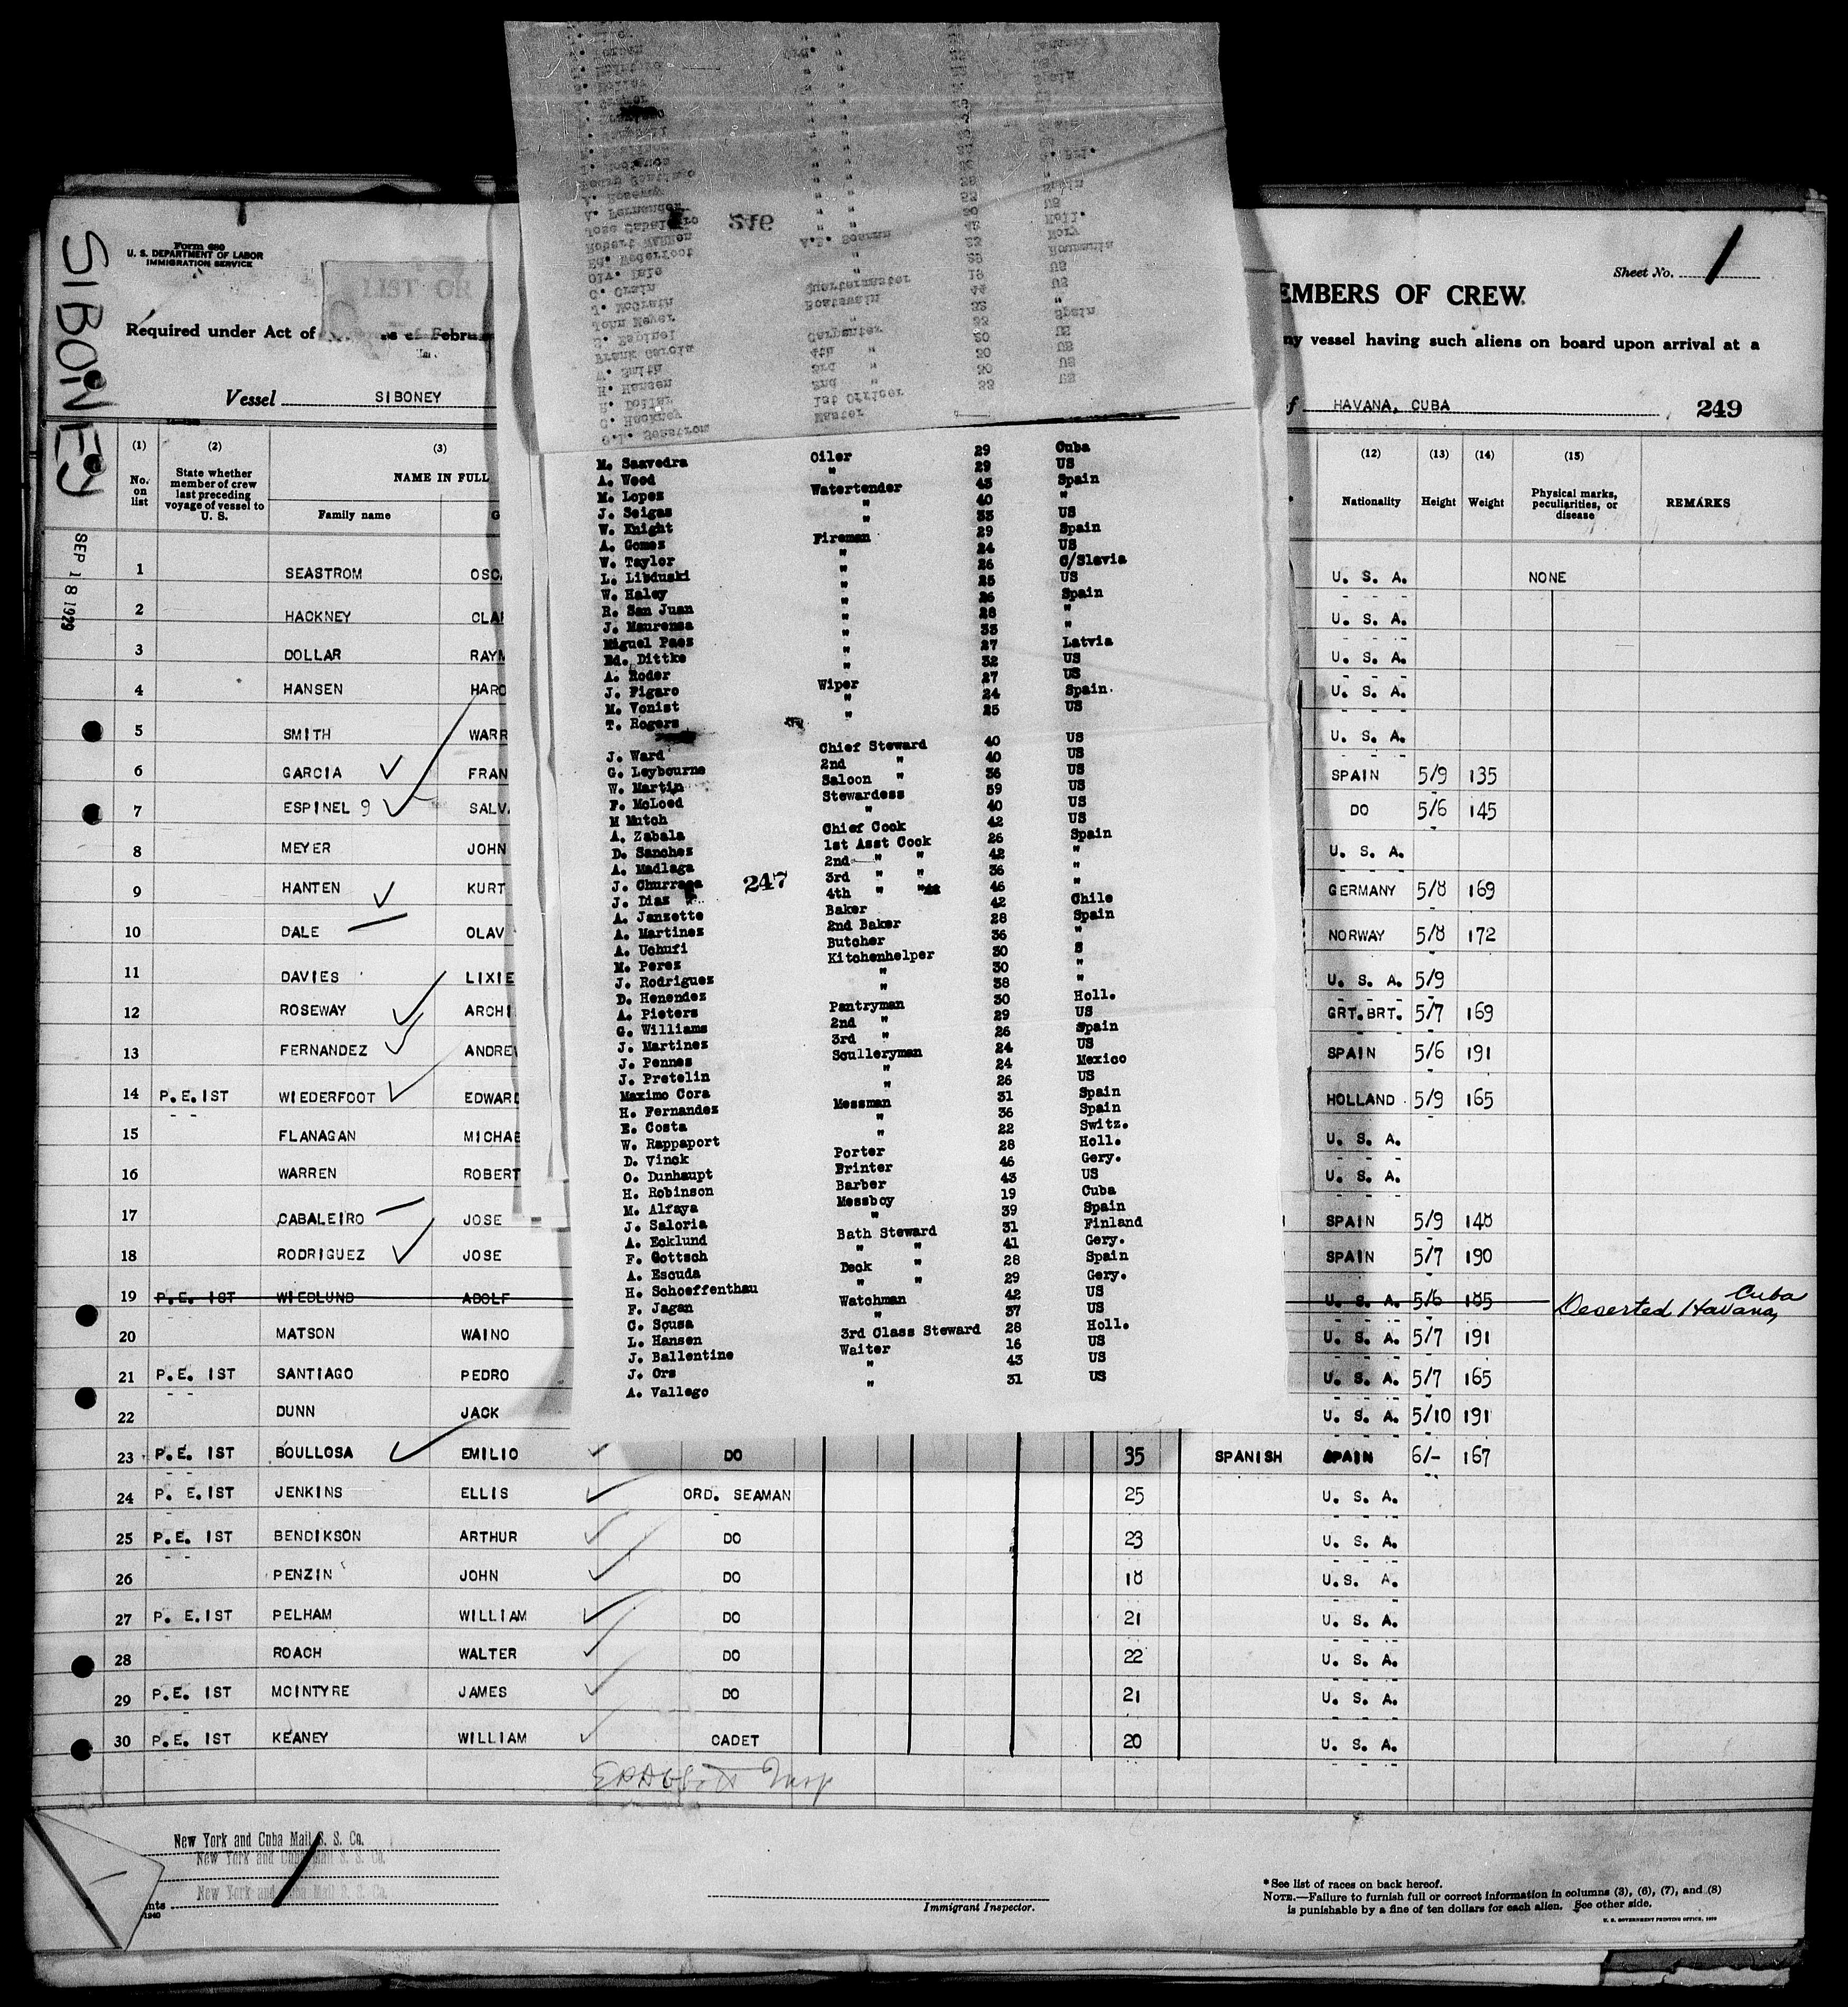 SIBONEY
SEP 18 1929
Form 680
U. S. DEPARTMENT OF LABOR
IMMIGRATION SERVICE
LIST OR
Required under Act of
Vessel SIBONEY
Sheet No. 1
EMBERS OF CREW.
ny vessel having such aliens on board upon arrival at a
f HAVANA, CUBA 249
(1) (2) (3) (12) (13) (14) (15)
No. on list State whether member of crew last preceding voyage of vessel to U. S. NAME IN FULL Family name G Nationality Height Weight Physical marks, peculiarities, or disease REMARKS
1 SEASTROM OSC U. S. A. NONE
2 HACKNEY CLA U. S. A.
3 DOLLAR RAYM U. S. A.
4 HANSEN HARO U. S. A.
5 SMITH WARR U. S. A.
6 GARCIA FRAN SPAIN 5/9 135
7 ESPINEL 9 SALV DO 5/6 145
8 MEYER JOHN U. S. A.
9 HANTEN KURT GERMANY 5/8 169
10 DALE OLAV NORWAY 5/8 172
11 DAVIES LIXIE U. S. A. 5/9
12 ROSEWAY ARCHI GRT. BRT. 5/7 169
13 FERNANDEZ ANDREW SPAIN 5/6 191
14 P.E. 1ST WIEDERFOOT EDWARD HOLLAND 5/9 165
15 FLANAGAN MICHAE U. S. A.
16 WARREN ROBERT U. S. A.
17 CABALEIRO JOSE SPAIN 5/9 148
18 RODRIGUEZ JOSE SPAIN 5/7 190
19 P.E. 1ST WIEDLUND ADOLF U. S. A. 5/6 185 Deserted Havana, Cuba
20 MATSON WAINO U. S. A. 5/7 191
21 P.E. 1ST SANTIAGO PEDRO U. S. A. 5/7 165
22 DUNN JACK U. S. A. 5/10 191
23 P.E. 1ST BOULLOSA EMILIO DO 35 SPANISH SPAIN 6/- 167
24 P. E. 1ST JENKINS ELLIS ORD. SEAMAN 25 U. S. A.
25 P.E. 1ST BENDIKSON ARTHUR DO 23 U. S. A.
26 PENZIN JOHN DO 18 U.S. A.
27 P. E. 1ST PELHAM WILLIAM DO 21 U. S. A.
28 ROACH WALTER DO 22 U. S. A.
29 P.E. 1ST MCINTYRE JAMES DO 21 U. S. A.
30 P.E. 1ST KEANEY WILLIAM CADET 20 U. S. A.
246
Jose Cabaleiro
Robert Warren
Ed. Wederfoot A.B. Seaman
Olv. Dale
C. Crain
J. McGrath Quartermaster
John Meyer Boatswain
S. Espinel
Frank Garcia Carpenter
W. Smith 4th "
H. Hansen 3rd "
R. Dollar 2nd "
C. Hackney 1st Officer
O.L. Seastrom Master
M. Saavedra Oiler 29 Cuba
A. Wood " 29 US
M. Lopez Watertender 45 Spain
J. Seigas " 40 "
W. Knight " 33 US
A. Gomez Fireman 29 Spain
W. Taylor " 24 US
L. Libduski " 26 C/Slavia
W. Haley " 25 US
R. San Juan " 26 Spain
J. Maurensa " 28 "
Miguel Paez " 33 "
Ed. Dittke " 27 Latvia
A. Roder " 32 US
J. Figaro Wiper 27 US
M. Vonist " 24 Spain
T. Rogers " 25 US
J. Ward Chief Steward 40 US
G. Leybourne 2nd " 40 US
W. Martin Saloon " 36 US
F. McLoed Stewardess 59 US
M Mutch " 40 US
A. Zabala Chief Cook 42 US
D. Sanchez 1st Asst Cook 26 Spain
A. Madlaga 2nd " " 42 "
J. Churraca 3rd " " 36 "
J. Diaz 4th " " 46 "
247
A. Janzette Baker 42 Chile
A. Martinez 2nd Baker 28 Spain
A. Uchufi Butcher 36 "
M. Perez Kitchenhelper 30
J. Rodriguez " 30 "
D. Henendez " 38 "
A. Pieters Pantryman 30 Holl.
G. Williams 2nd " 29 US
J. Martinez 3rd " 26 Spain
J. Pennes Sculleryman 24 US
J. Pretelin " 24 Mexico
Maximo Cora " 26 US
H. Fernandez Messman 31 Spain
E. Costa " 36 Spain
W. Rappaport " 22 Switz.
D. Vinck Porter 28 Holl.
O. Dunhaupt Brinter 46 Gery.
H. Robinson Barber 43 US
M. Alfaya Messboy 19 Cuba
J. Saloria " 39 Spain
A. Ecklund Bath Steward 31 Finland
F. Gottsch " " 41 Gery.
A. Escuda Deck " 28 Spain
H. Schoeffenthau " " 29 Gery.
F. Jagan Watchman 42 US
C. Sousa " 37 US
L. Hansen 3rd Class Steward 28 Holl.
J. Ballentine Waiter 16 US
J. Ors " 43 US
A. Vallego " 31 US
New York and Cuba Mail S. S. Co.
New York and Cuba Mail S. S. Co.
New York and Cuba Mail S. S. Co.
Immigrant Inspector.
*See list of races on back hereof.
NOTE.—Failure to furnish full or correct information in columns (3), (6), (7), and (8)
is punishable by a fine of ten dollars for each alien. See other side.
U. S. GOVERNMENT PRINTING OFFICE,